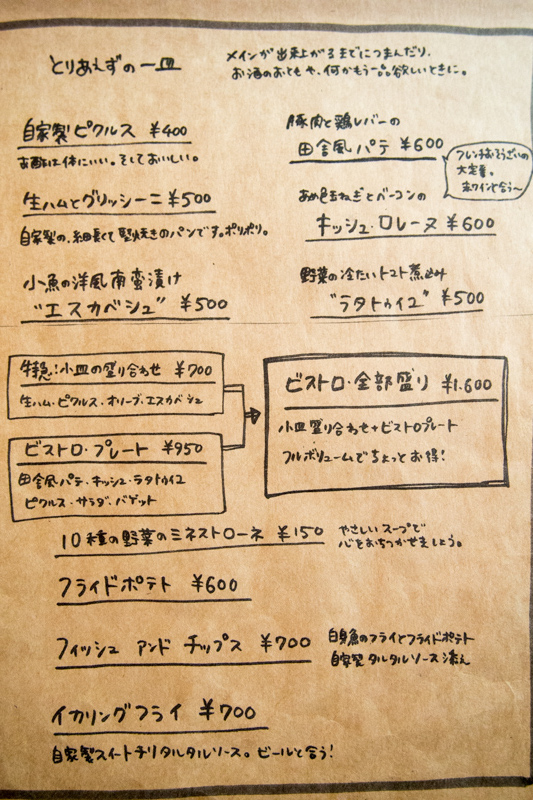 とりあえずの一皿
メインが出来上がるまでにつまんだり、
お酒のおともや、何かもう一品欲しいときに。
自家製ピクルス ¥400
お酢は体にいい。そしておいしい。
生ハムとグリッシーニ ¥500
自家製の、細長くて堅焼きのパンです。ポリポリ。
小魚の洋風南蛮漬け
"エスカベシュ" ¥500
豚肉と鶏レバーの
田舎風パテ ¥600
フレンチおそうざいの
大定番。
赤ワインと合う〜
あめ色玉ねぎとベーコンの
キッシュ・ロレーヌ ¥600
野菜の冷たいトマト煮込み
"ラタトゥイユ" ¥500
特急!小皿の盛り合わせ ¥700
生ハム・ピクルス・オリーブ・エスカベシュ
ビストロ・プレート ¥950
田舎風パテ・キッシュ・ラタトゥイユ
ピクルス・サラダ・バゲット
ビストロ・全部盛り ¥1.600
小皿盛り合わせ+ビストロプレート
フルボリュームでちょっとお得!
10種の野菜のミネストローネ ¥150
やさしいスープで
心をおちつかせましょう。
フライドポテト ¥600
フィッシュ アンド チップス ¥700
白身魚のフライとフライドポテト
自家製タルタルソース添え
イカリングフライ ¥700
自家製スイートチリタルタルソース。ビールと合う!